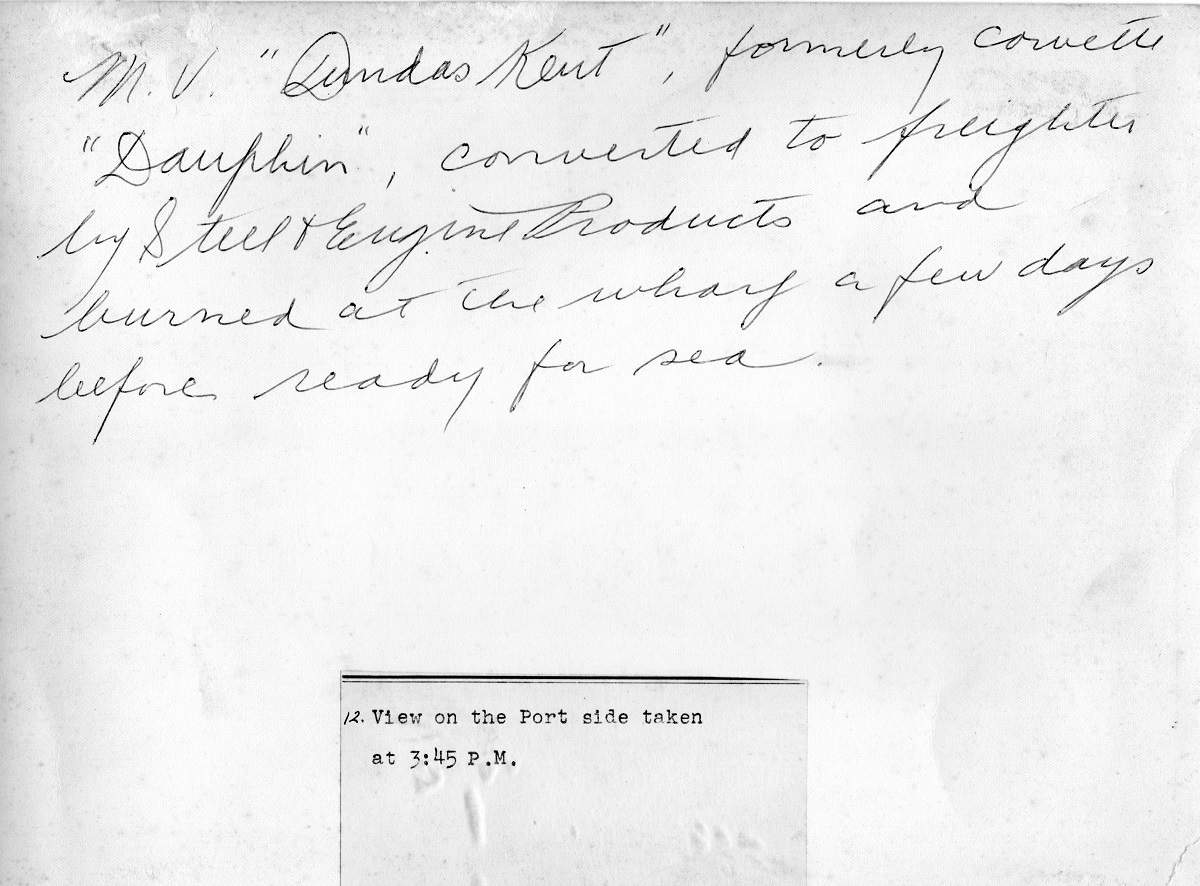 M.V. "Dundas Kent", formerly corvette
"Dauphin", converted to freighter
by Steel & Engine Products and
burned at the wharf a few days
before ready for sea.
12. View on the Port side taken
at 3:45 P.M.